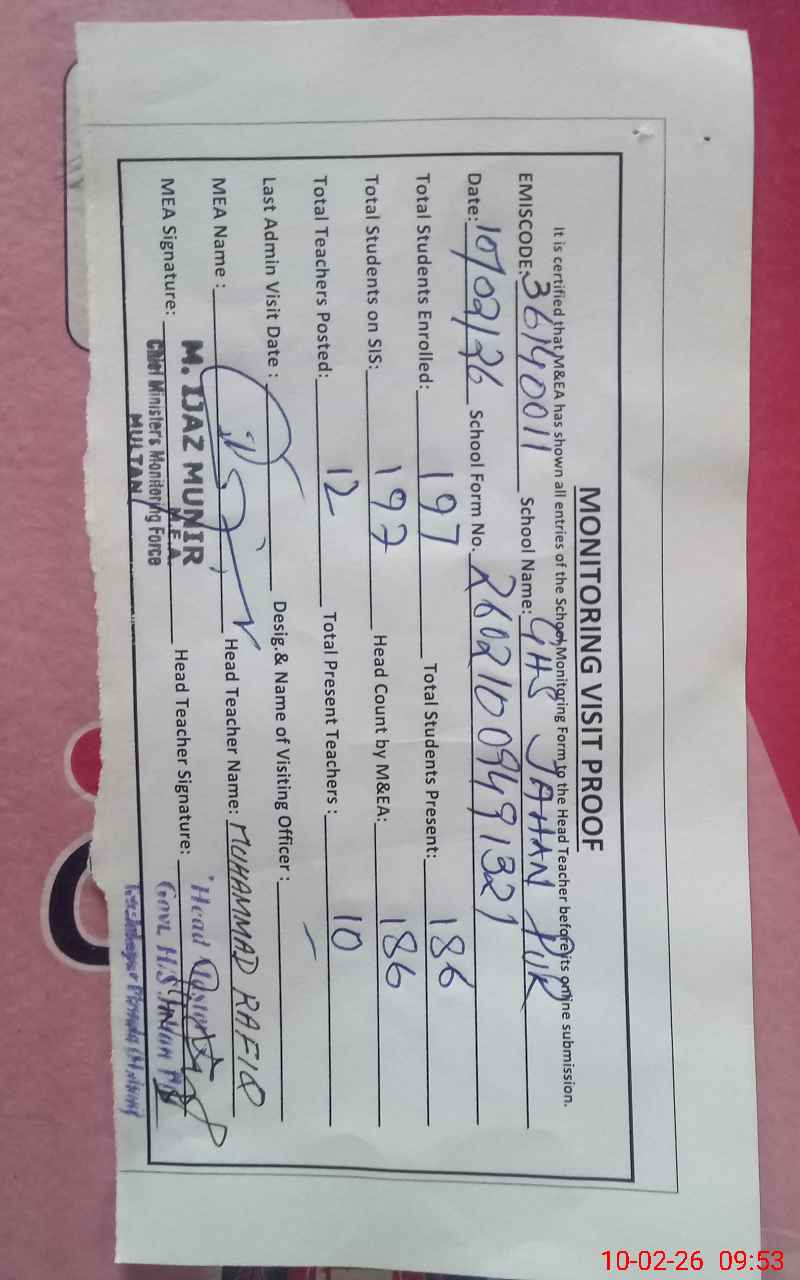 MONITORING VISIT PROOF
It is certified that M&EA has shown all entries of the School Monitoring Form to the Head Teacher before its online submission.
EMISCODE: 36140011 School Name: GHS JAHAN PUR
Date: 10/02/26 School Form No. 26021009491321
Total Students Enrolled: 197 Total Students Present: 186
Total Students on SIS: 197 Head Count by M&EA: 186
Total Teachers Posted: 12 Total Present Teachers : 10
Last Admin Visit Date : Desig.& Name of Visiting Officer : -
MEA Name : Head Teacher Name: MUHAMMAD RAFIQ
MEA Signature: Head Teacher Signature:
M. IJAZ MUNIR
M.E.A.
Chief Minister's Monitoring Force
MULTAN
Head Master
Govt. H/S
10-02-26 09:53